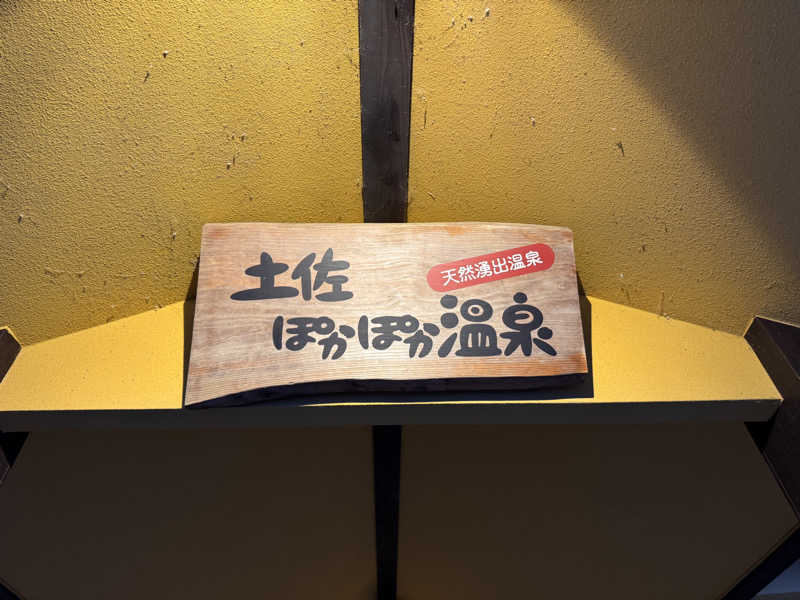 土佐
天然湧出温泉
ぽかぽか温泉